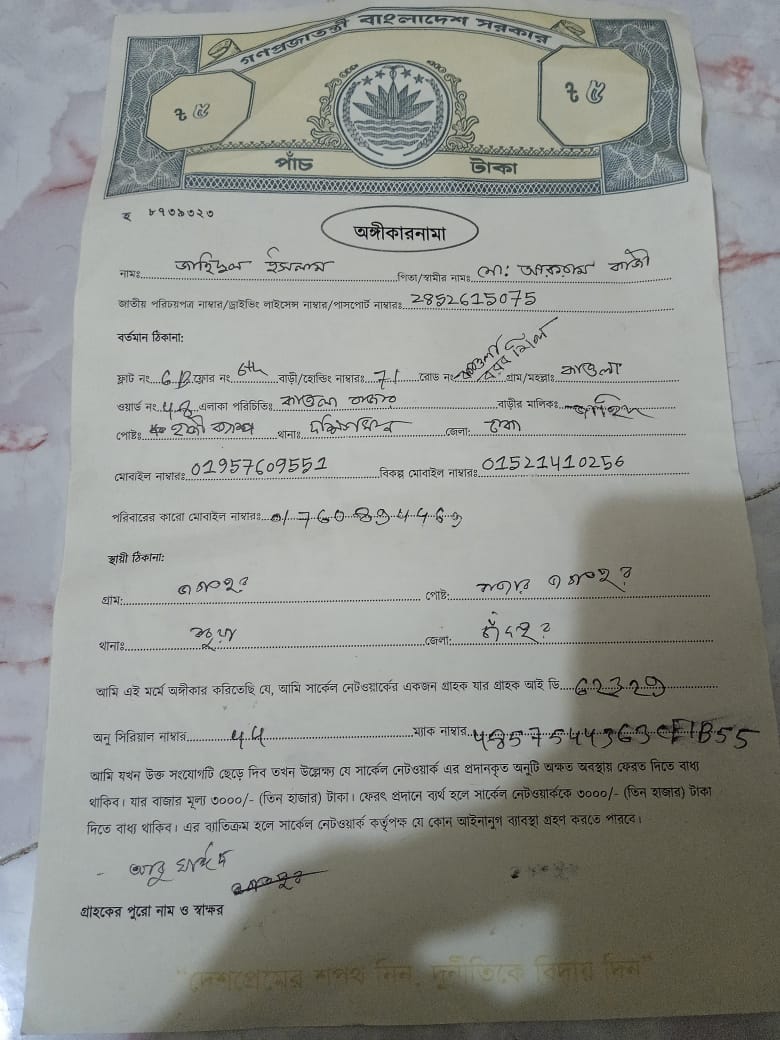 গণপ্রজাতন্ত্রী বাংলাদেশ সরকার
৳ ৫ ৳ ৫
পাঁচ টাকা
হ ৮৭৩৯৩২৩
অঙ্গীকারনামা
নামঃ জাহিদুল ইসলাম পিতা/স্বামীর নামঃ মো: আকরাম কাজী
জাতীয় পরিচয়পত্র নাম্বার/ড্রাইভিং লাইসেন্স নাম্বার/পাসপোর্ট নাম্বারঃ 2852615075
বর্তমান ঠিকানা:
ফ্লাট নং 6B ফ্লোর নং 6th বাড়ী/হোল্ডিং নাম্বারঃ 71 রোড নং কাওলা গ্রাম/মহল্লাঃ কাওলা
ওয়ার্ড নং 48 এলাকা পরিচিতিঃ কাওলা বাজার বাড়ীর মালিকঃ
পোষ্টঃ হজী ক্যাম্প থানাঃ দক্ষিণখান জেলা: ঢাকা
মোবাইল নাম্বারঃ 01957609551 বিকল্প মোবাইল নাম্বারঃ 01521410256
পরিবারের কারো মোবাইল নাম্বারঃ
স্থায়ী ঠিকানা:
গ্রাম: পোষ্ট:
থানাঃ জেলা:
আমি এই মর্মে অঙ্গীকার করিতেছি যে, আমি সার্কেল নেটওয়ার্কের একজন গ্রাহক যার গ্রাহক আই ডি 62329
অনু সিরিয়াল নাম্বার 44 ম্যাক নাম্বার
আমি যখন উক্ত সংযোগটি ছেড়ে দিব তখন উল্লেক্ষ্য যে সার্কেল নেটওয়ার্ক এর প্রদানকৃত অনুটি অক্ষত অবস্থায় ফেরত দিতে বাধ্য
থাকিব। যার বাজার মূল্য ৩০০০/- (তিন হাজার) টাকা। ফেরৎ প্রদানে ব্যর্থ হলে সার্কেল নেটওয়ার্ককে ৩০০০/- (তিন হাজার) টাকা
দিতে বাধ্য থাকিব। এর ব্যাতিক্রম হলে সার্কেল নেটওয়ার্ক কর্তৃপক্ষ যে কোন আইনানুগ ব্যাবস্থা গ্রহণ করতে পারবে।
গ্রাহকের পুরো নাম ও স্বাক্ষর
"দেশপ্রেমের শপথ নিন, দুর্নীতিকে বিদায় দিন"